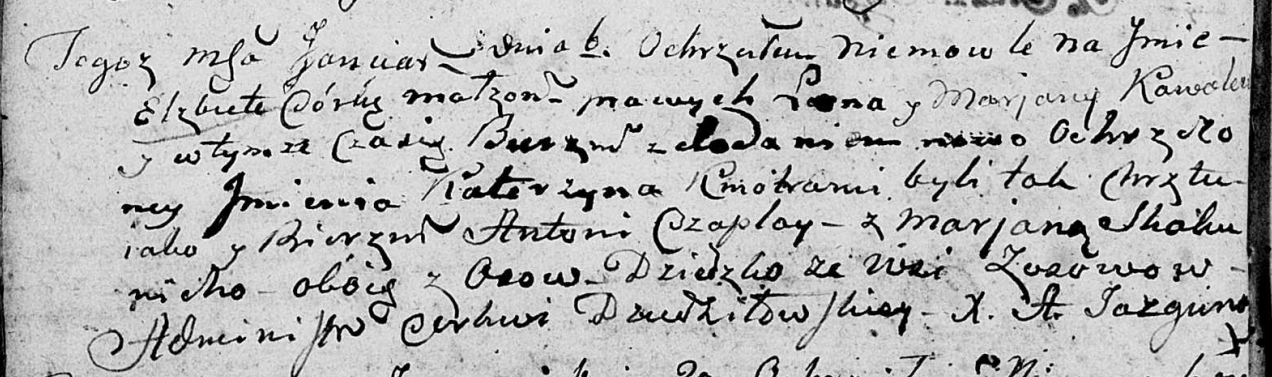 Tegoż mśa Januar dnia 6. Ochrzciłem Niemowle na Jmie-
Elzbiete Córkę małżon- prawych Leona y Marjany Kawalew
y wtymze Czasie Burzm z dodaniem nowo Ochrzczo
ney Jmienia Katerzyna Kmotrami byli tak Chrztu-
iako y Bierzm Antoni Czaplay- z Marjaną Skaku
nicho- obóie z Osow- Dziedzho ze Wsi
Administr Cerkwi Dziedziłowskiey- X. A. Jazguno